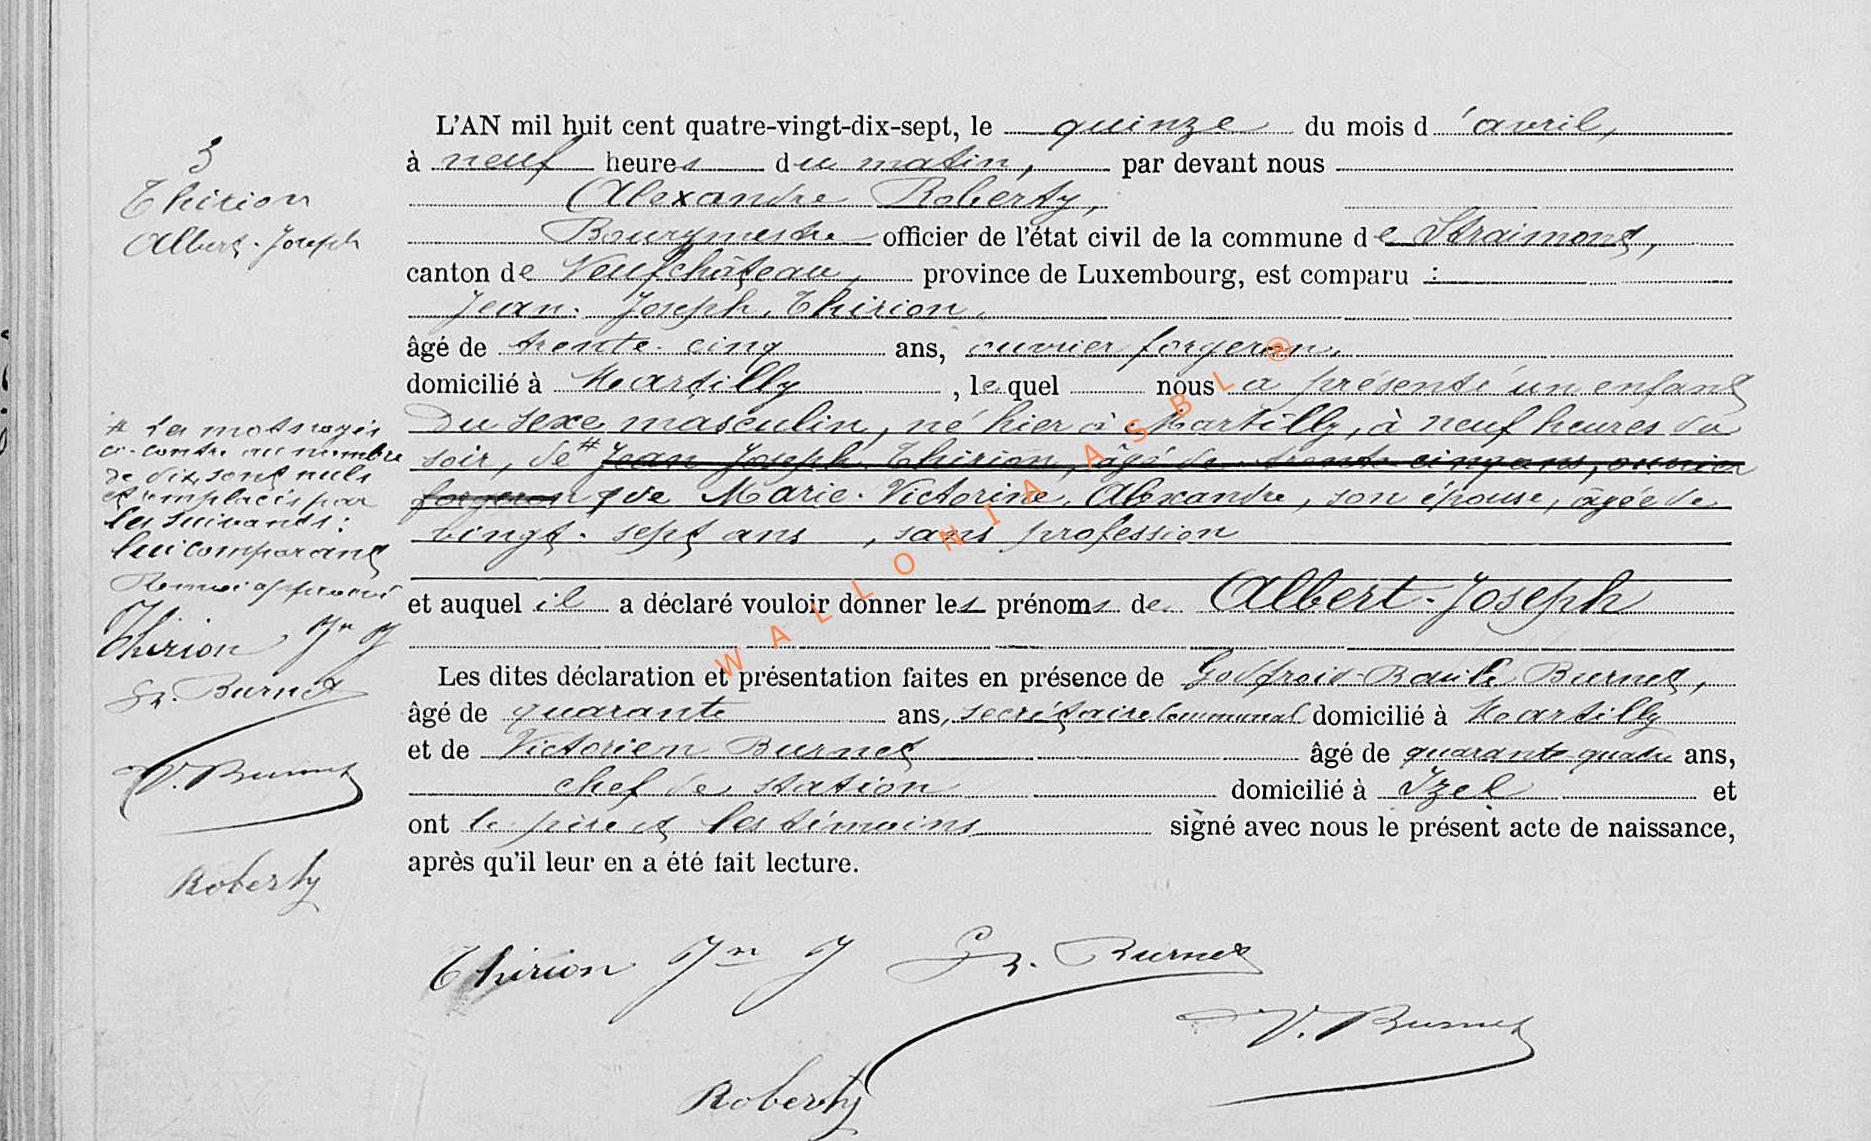 3
Thirion
Albert-Joseph
L'AN mil huit cent quatre-vingt-dix-sept, le quinze du mois d'avril,
à neuf heures du matin, par devant nous
Alexandre Roberty,
Bourgmestre officier de l'état civil de la commune de Straimont,
canton de Neufchâteau, province de Luxembourg, est comparu :
Jean-Joseph Thirion,
âgé de trente-cinq ans, ouvrier forgeron,
domicilié à Martilly, lequel nous a présenté un enfant
du sexe masculin, né hier à Martilly, à neuf heures du
soir, de # Jean Joseph Thirion, âgé de trente cinq ans, ouvrier
forgeron & de Marie-Victorine Alexandre, son épouse, âgée de
vingt-sept ans, sans profession
et auquel il a déclaré vouloir donner les prénoms de Albert-Joseph
Les dites déclaration et présentation faites en présence de Godfroid Burnet,
âgé de quarante ans, secrétaire communal domicilié à Martilly
et de Victorien Burnet âgé de quarante quatre ans,
chef de station domicilié à Izel et
ont le père et les témoins signé avec nous le présent acte de naissance,
après qu'il leur en a été fait lecture.
# Les mots rayés
ci-contre au nombre
de dix sont nuls
et remplacés par
les suivants :
lui comparant
Renvoi approuvé
Thirion Jn J
Burnet
V. Burnet
Roberty
Thirion Jn J
Burnet
V. Burnet
Roberty
WALLONIA ASBL ®